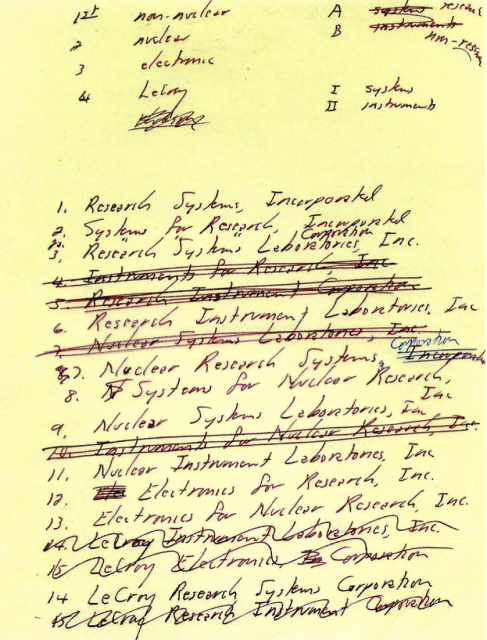 1st non-nuclear A systems research
2 nuclear B instruments non-resea
3 electronic
4 LeCroy I systems
II instruments
1. Research Systems, Incorporated
2. Systems for Research, Incorporated
3. Research Systems Laboratories, Inc. Corporation
4. Instruments for Research, Inc
5. Research Instrument Corporation
6. Research Instrument Laboratories, Inc
7. Nuclear Systems Laboratories, Inc
7. Nuclear Research Systems, Corporation Incorpora
8. Systems for Nuclear Research, Inc
9. Nuclear Systems Laboratories, Inc
10. Instruments for Nuclear Research, Inc.
11. Nuclear Instrument Laboratories, Inc
12. Electronics for Research, Inc.
13. Electronics for Nuclear Research, Inc.
14. LeCroy Instrument Laboratories, Inc.
15 LeCroy Electronics Corporation
14 LeCroy Research Systems Corporation
15. LeCroy Research Instrument Corporation